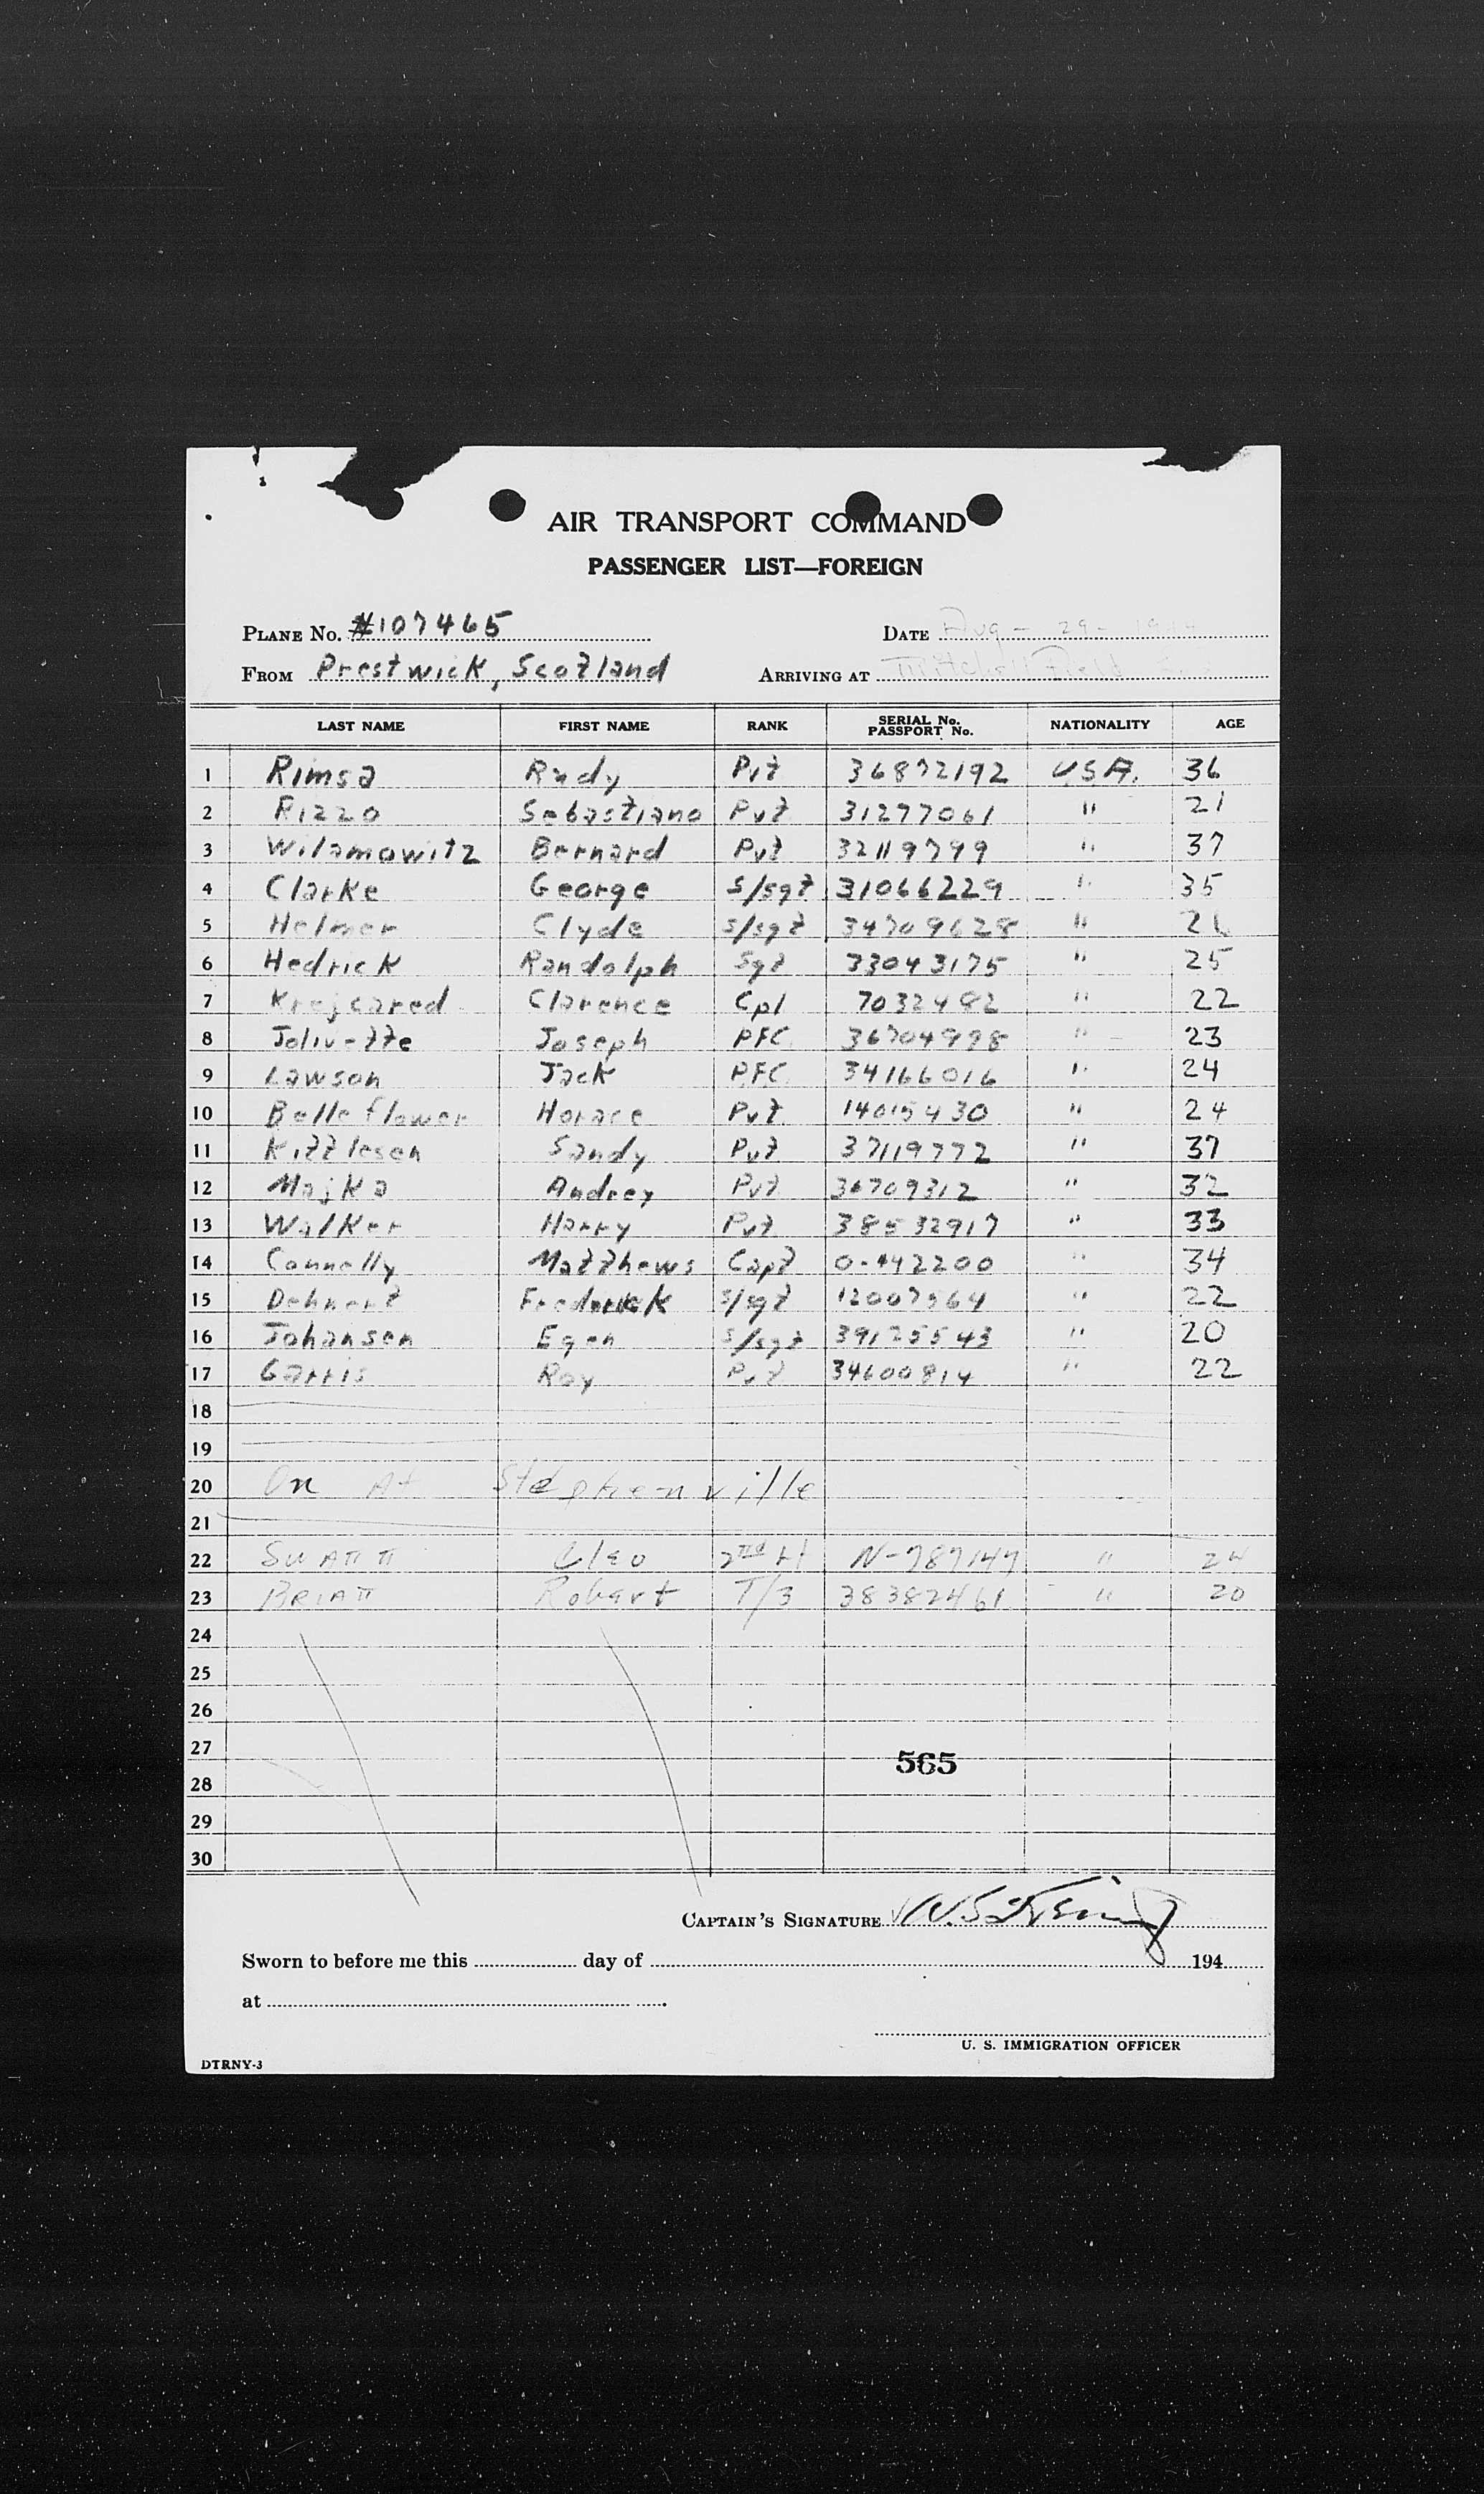 AIR TRANSPORT COMMAND
PASSENGER LIST—FOREIGN
PLANE No. #107465 DATE Aug - 29 - 1944
FROM Prestwick, Scotland ARRIVING AT Mitchel Field
LAST NAME FIRST NAME RANK SERIAL No. PASSPORT No. NATIONALITY AGE
1 Rimsa Rudy Pvt 36872192 U.S.A. 36
2 Rizzo Sebastiano Pvt 31277061 " 21
3 Wilamowitz Bernard Pvt 32119799 " 37
4 Clarke George S/sgt 31066229 " 35
5 Helmer Clyde S/sgt 34709628 "
6 Hedrick Randolph Sgt 33043175 " 25
7 Krejcared Clarence Cpl 7032482 " 22
8 Jolivette Joseph PFC 36704998 " 23
9 Lawson Jack PFC 34166016 " 24
10 Belleflower Horace Pvt 14015430 " 24
11 Kittleson Sandy Pvt 37119772 " 37
12 Majka Andrey Pvt 36709312 " 32
13 Walker Harry Pvt 38532917 " 33
14 Connelly Matthews Capt 0-442200 " 34
15 Dehnert Frederick S/sgt 12007564 " 22
16 Johansen Egen S/sgt 39125543 " 20
17 Garris Roy Pvt 34600814 " 22
18
19
20 On At Stephenville
21
22 Swann Cleo 2nd Lt N-787147 " 24
23 Brian Robert T/3 38382461 " 20
24
25
26
27
565
28
29
30
CAPTAIN'S SIGNATURE
Sworn to before me this day of 194
at
U. S. IMMIGRATION OFFICER
DTRNY-3